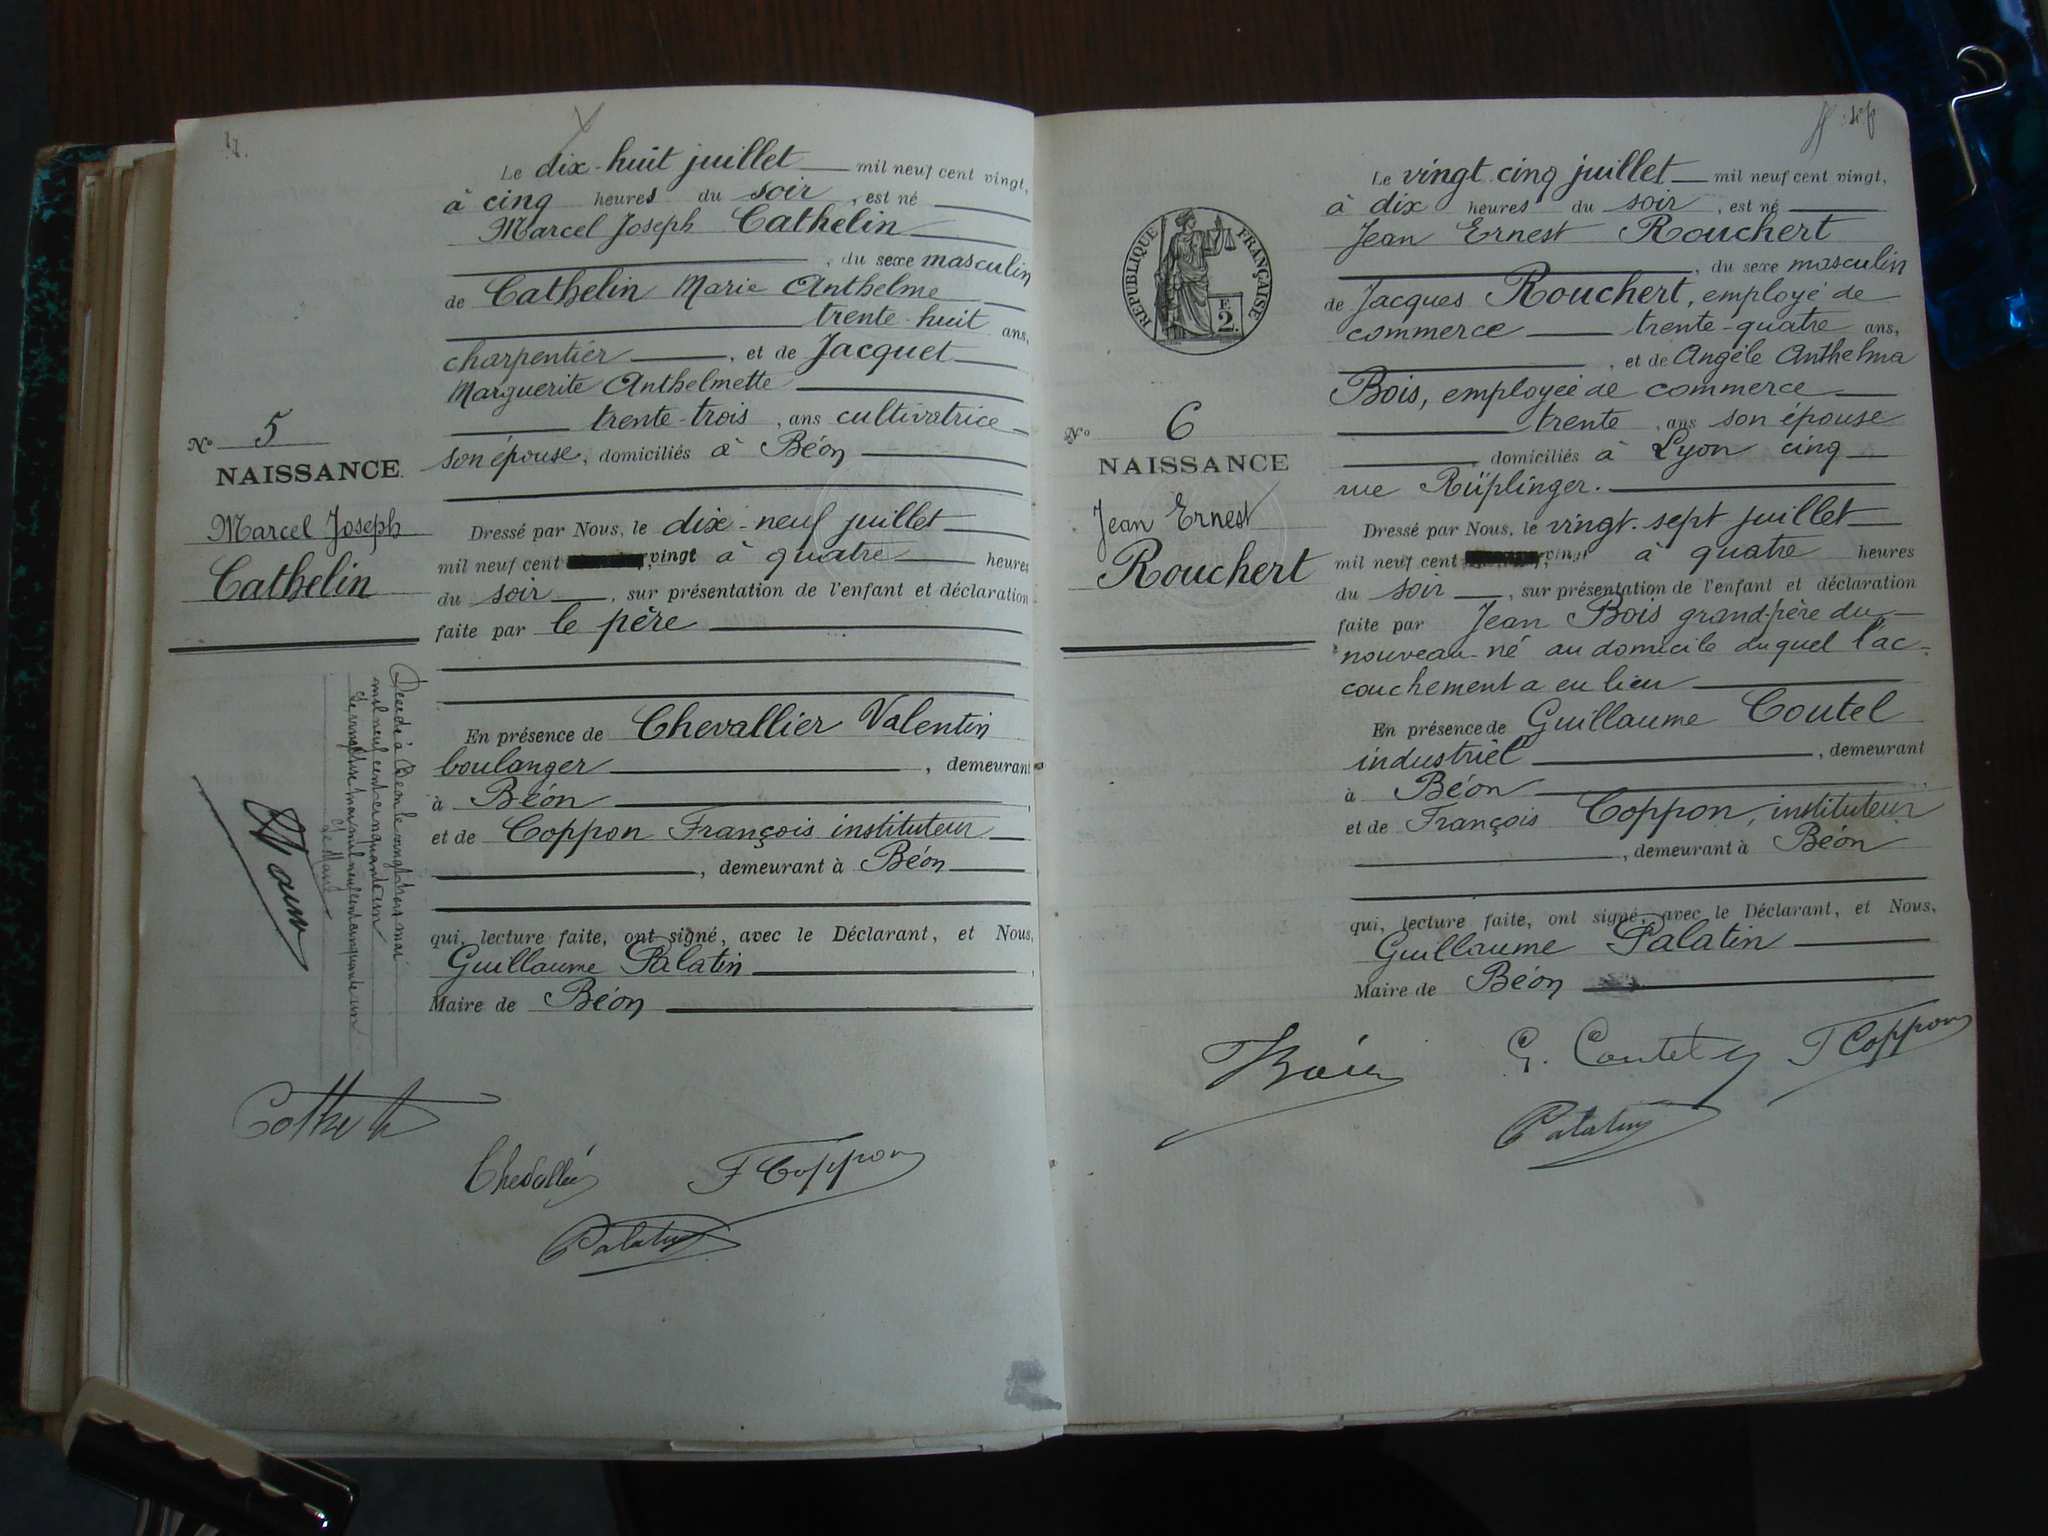 Le dix-huit juillet mil neuf cent vingt,
à cinq heures du soir, est né
Marcel Joseph Cathelin
, du sexe masculin
de Cathelin Marie Anthelme
trente-huit ans,
charpentier, et de Jacquet
Marguerite Anthelmette
trente-trois, ans cultivatrice
son épouse, domiciliés à Béon
N° 5
NAISSANCE.
Marcel Joseph
Cathelin
Dressé par Nous, le dix-neuf juillet
mil neuf cent vingt à quatre heures
du soir, sur présentation de l'enfant et déclaration
faite par le père
En présence de Chevallier Valentin
boulanger, demeurant
à Béon,
et de Coppon François instituteur
, demeurant à Béon
qui, lecture faite, ont signé, avec le Déclarant, et Nous,
Guillaume Palatin,
Maire de Béon
Décédé à Béon le vingt trois mai
mil neuf cent cinquante un
mai mil neuf cent cinquante un
Le Maire
Chevallier
F Coppon
Palatin
Le vingt-cinq juillet mil neuf cent vingt,
à dix heures du soir, est né
Jean Ernest Rouchert
, du sexe masculin
de Jacques Rouchert, employé de
commerce trente-quatre ans,
, et de Angèle Anthelma
Bois, employée de commerce
trente, ans son épouse
domiciliés à Lyon cinq
rue Rüplinger.
RÉPUBLIQUE FRANÇAISE
F.
2.
N° 6
NAISSANCE
Jean Ernest
Rouchert
Dressé par Nous, le vingt-sept juillet
mil neuf cent vingt à quatre heures
du soir, sur présentation de l'enfant et déclaration
faite par Jean Bois grand-père du
nouveau-né au domicile duquel l'ac-
couchement a eu lieu
En présence de Guillaume Coutel
industriel, demeurant
à Béon
et de François Coppon, instituteur
, demeurant à Béon
qui, lecture faite, ont signé, avec le Déclarant, et Nous,
Guillaume Palatin
Maire de Béon
Bois
G. Coutel
F Coppon
Palatin